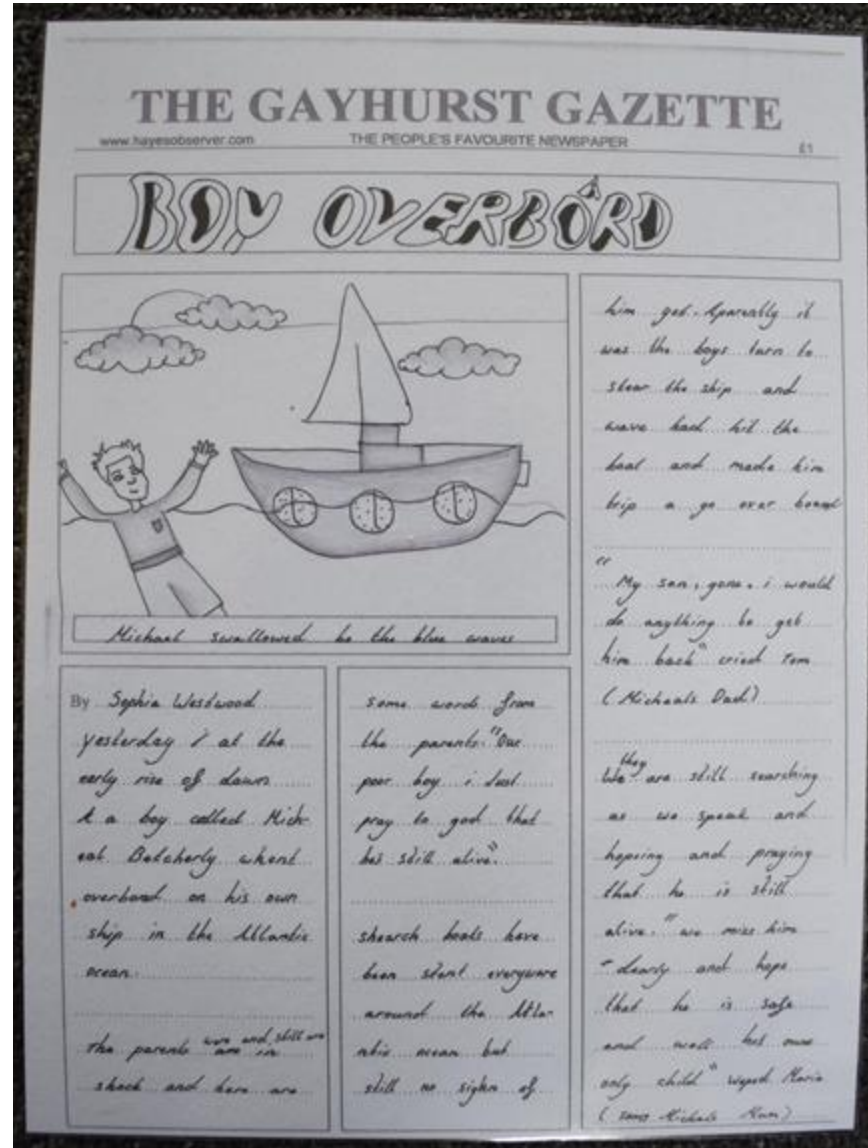 THE GAYHURST GAZETTE
www.hayesobserver.com THE PEOPLE'S FAVOURITE NEWSPAPER £1
BOY OVERBORD
Michael swallowed be the blue waves
By Sophia Westwood
yesterday at the
early rise of dawn
a boy called Mich-
eal Betcherly whent
overboad on his own
ship in the Atlantic
ocean.
The parents were and still are
are in
shock and here are
some words from
the parents. "Our
poor boy i just
pray to god that
he's still alive".
shearch boats have
been stent everyware
around the Atla-
ntic ocean but
still no sighn of
him yet. Aparently it
was the boys turn to
stear the ship and
wave had hit the
boat and made him
trip a go over board
"My son, gone, i would
do anything to get
him back" cried Tom
(Micheals Dad)
We they are still searching
as we speak and
hopeing and praying
that he is still
alive. "we miss him
dearly and hope
that he is safe
and well his our
only child" weped Maria
(Michals Mum)